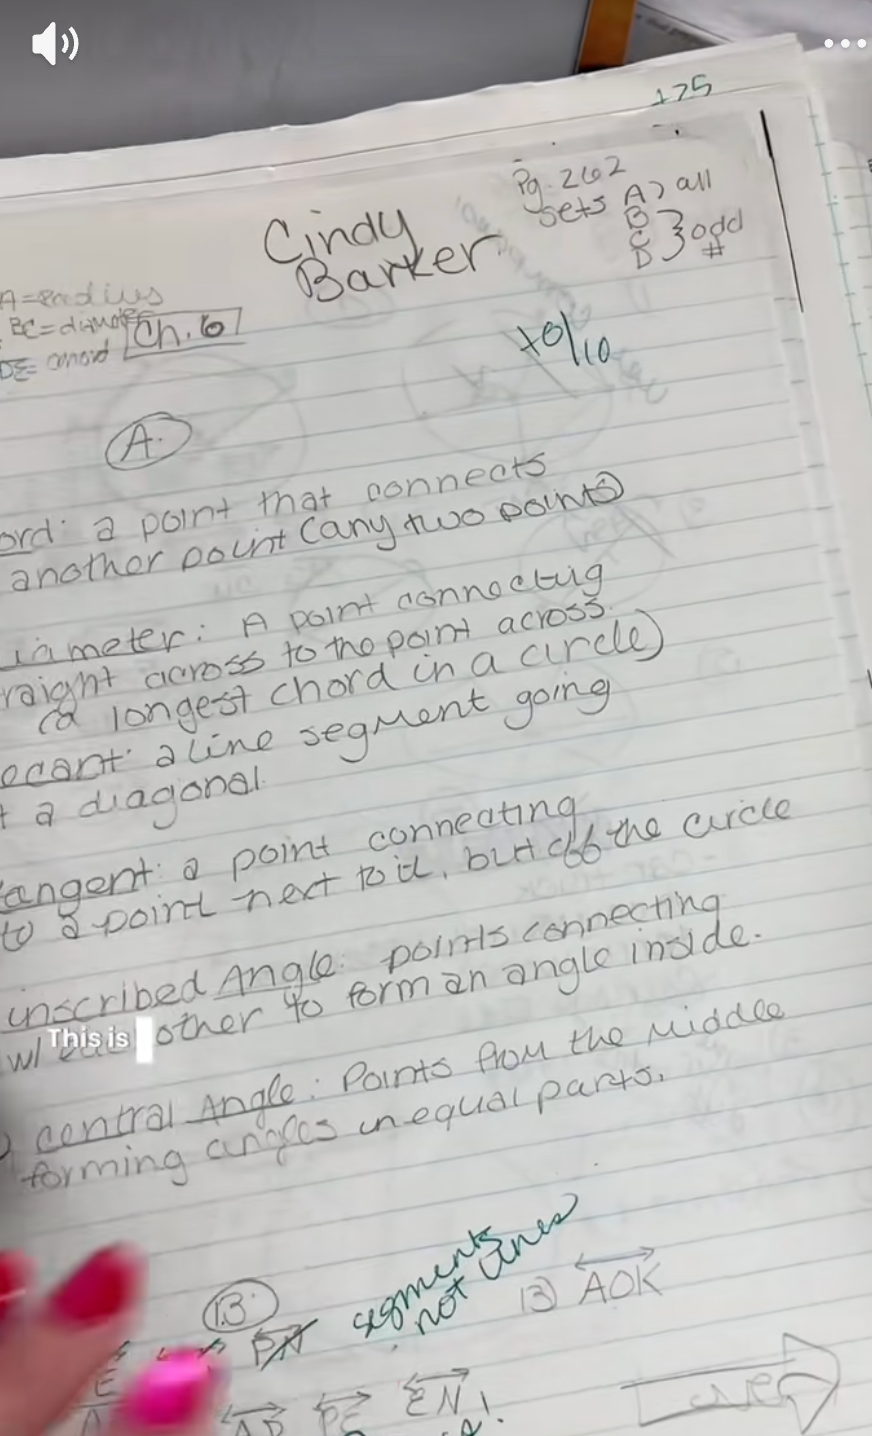 175
Pg. 262
sets A > all
B
C } odd
D #
Cindy
Barker
A = radius
BC =
DE = chord
Ch. 6
+0/10
A.
ord: a point that connects
another point (any two points)
iameter: A point connecting
raight across to the point across.
(a longest chord in a circle)
ecant: a line segment going
t a diagonal.
angent: a point connecting
to a point next to it, but off the circle
inscribed Angle: points connecting
w/ other to form an angle inside.
This is
central Angle: Points from the Middle
forming angles in equal parts.
B.
segments
not lines
13) AOK
E
PN
AB PE EN!
over